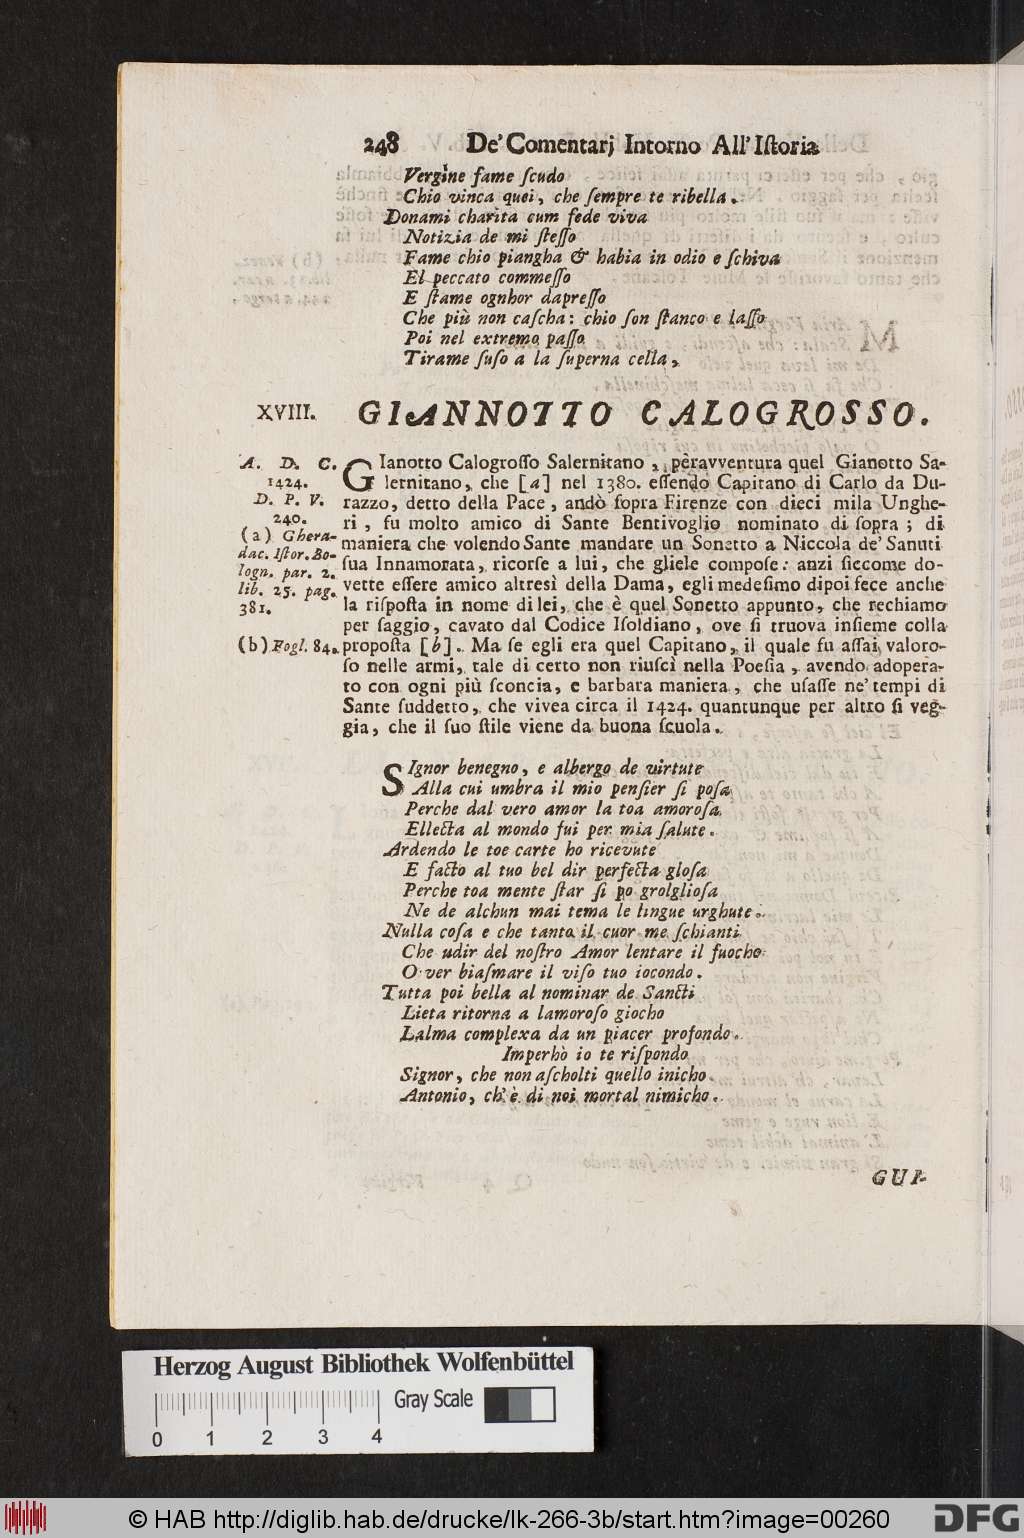 248 De' Comentarj Intorno All' Iſtoria
Vergine fame ſcudo
Chio vinca quei, che ſempre te ribella.
Donami charita cum fede viva
Notizia de mi ſteſſo
Fame chio piangha & habia in odio e ſchiva
El peccato commeſſo
E ſtame ognhor dapreſſo
Che più non caſcha: chio ſon ſtanco e laſſo
Poi nel extremo paſſo
Tirame ſuſo a la ſuperna cella,
XVIII. GIANNOTTO CALOGROSSO.
A. D. C.
1424.
D. P. V.
240.
(a) Ghera-
dac. Iſtor. Bo-
logn. par. 2.
lib. 25. pag.
381.
(b) Fogl. 84.
GIanotto Calogroſſo Salernitano, peravventura quel Gianotto Sa-
lernitano, che [a] nel 1380. eſſendo Capitano di Carlo da Du-
razzo, detto della Pace, andò ſopra Firenze con dieci mila Unghe-
ri, fu molto amico di Sante Bentivoglio nominato di ſopra; di
maniera che volendo Sante mandare un Sonetto a Niccola de' Sanuti
ſua Innamorata, ricorſe a lui, che gliele compoſe: anzi ſiccome do-
vette eſſere amico altresì della Dama, egli medeſimo dipoi fece anche
la riſpoſta in nome di lei, che è quel Sonetto appunto, che rechiamo
per ſaggio, cavato dal Codice Iſoldiano, ove ſi truova inſieme colla
propoſta [b]. Ma ſe egli era quel Capitano, il quale fu aſſai valoro-
ſo nelle armi, tale di certo non riuſcì nella Poeſia, avendo adopera-
to con ogni più ſconcia, e barbara maniera, che uſaſſe ne' tempi di
Sante ſuddetto, che vivea circa il 1424. quantunque per altro ſi veg-
gia, che il ſuo ſtile viene da buona ſcuola.
SIgnor benegno, e albergo de virtute
Alla cui umbra il mio penſier ſi poſa
Perche dal vero amor la toa amoroſa
Ellecta al mondo fui per mia ſalute.
Ardendo le toe carte ho ricevute
E facto al tuo bel dir perfecta gloſa
Perche toa mente ſtar ſi po grolglioſa
Ne de alchun mai tema le lingue urghute.
Nulla coſa e che tanto il cuor me ſchianti
Che udir del noſtro Amor lentare il fuocho
O ver biaſmare il viſo tuo iocondo.
Tutta poi bella al nominar de Sancti
Lieta ritorna a lamoroſo giocho
Lalma complexa da un piacer profondo.
Imperhò io te riſpondo
Signor, che non aſcholti quello inicho
Antonio, ch' è di noi mortal nimicho.
GUI-
Herzog August Bibliothek Wolfenbüttel
Gray Scale
0 1 2 3 4
© HAB http://diglib.hab.de/drucke/lk-266-3b/start.htm?image=00260
DFG